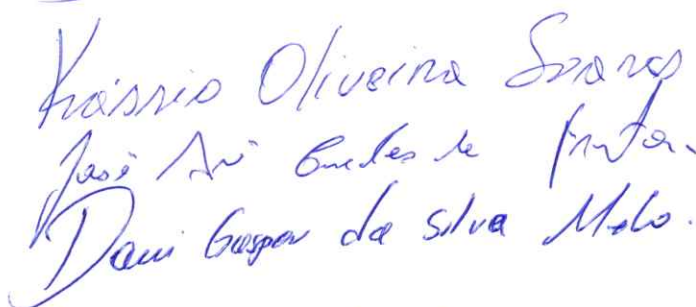 Krássio Oliveira Soares
José Ari Guedes de
Davi Gaspar da Silva Melo.